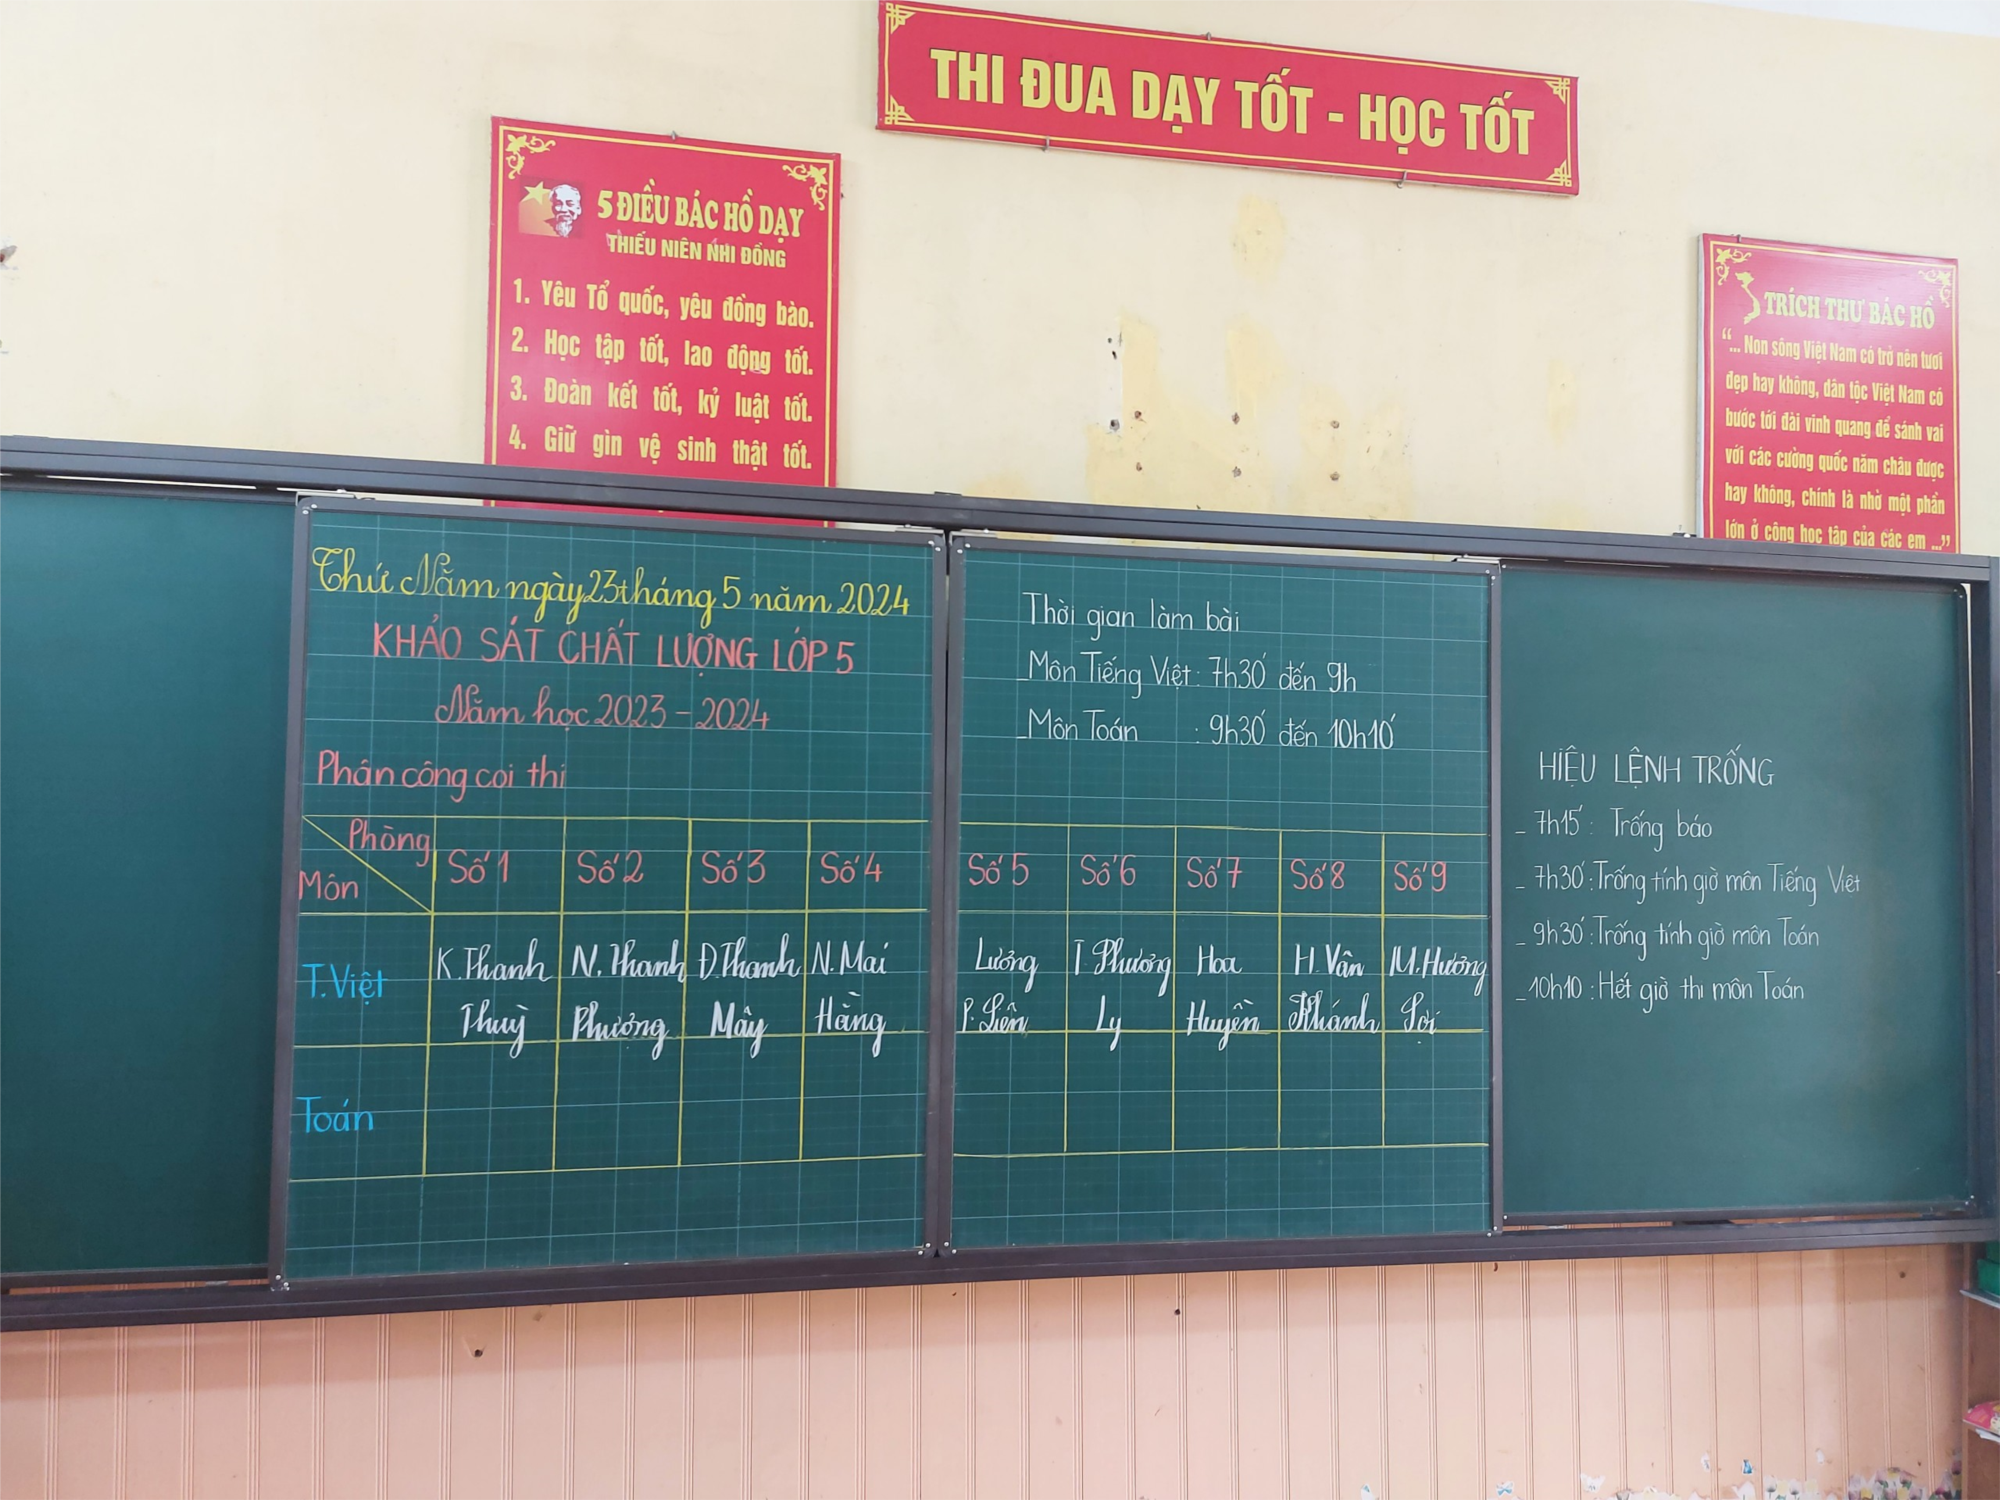 THI ĐUA DẠY TỐT - HỌC TỐT
5 ĐIỀU BÁC HỒ DẠY
THIẾU NIÊN NHI ĐỒNG
1. Yêu Tổ quốc, yêu đồng bào.
2. Học tập tốt, lao động tốt.
3. Đoàn kết tốt, kỷ luật tốt.
4. Giữ gìn vệ sinh thật tốt.
TRÍCH THƯ BÁC HỒ
"... Non sông Việt Nam có trở nên tươi
đẹp hay không, dân tộc Việt Nam có
bước tới đài vinh quang để sánh vai
với các cường quốc năm châu được
hay không, chính là nhờ một phần
lớn ở công học tập của các em ..."
Thứ Năm ngày 23 tháng 5 năm 2024
KHẢO SÁT CHẤT LƯỢNG LỚP 5
Năm học 2023 - 2024
Phân công coi thi
Phòng Số 1 Số 2 Số 3 Số 4
Môn
T.Việt K.Thanh N.Thanh Đ.Thanh N.Mai
Thuỳ Phượng Mây Hằng
Toán
Thời gian làm bài
- Môn Tiếng Việt: 7h30' đến 9h
- Môn Toán : 9h30' đến 10h10'
Số 5 Số 6 Số 7 Số 8 Số 9
Lưỡng T Phương Hoa H.Vân M.Hương
P.Liên Ly Huyền Khánh Lợi
HIỆU LỆNH TRỐNG
- 7h15': Trống báo
- 7h30': Trống tính giờ môn Tiếng Việt
- 9h30': Trống tính giờ môn Toán
- 10h10: Hết giờ thi môn Toán